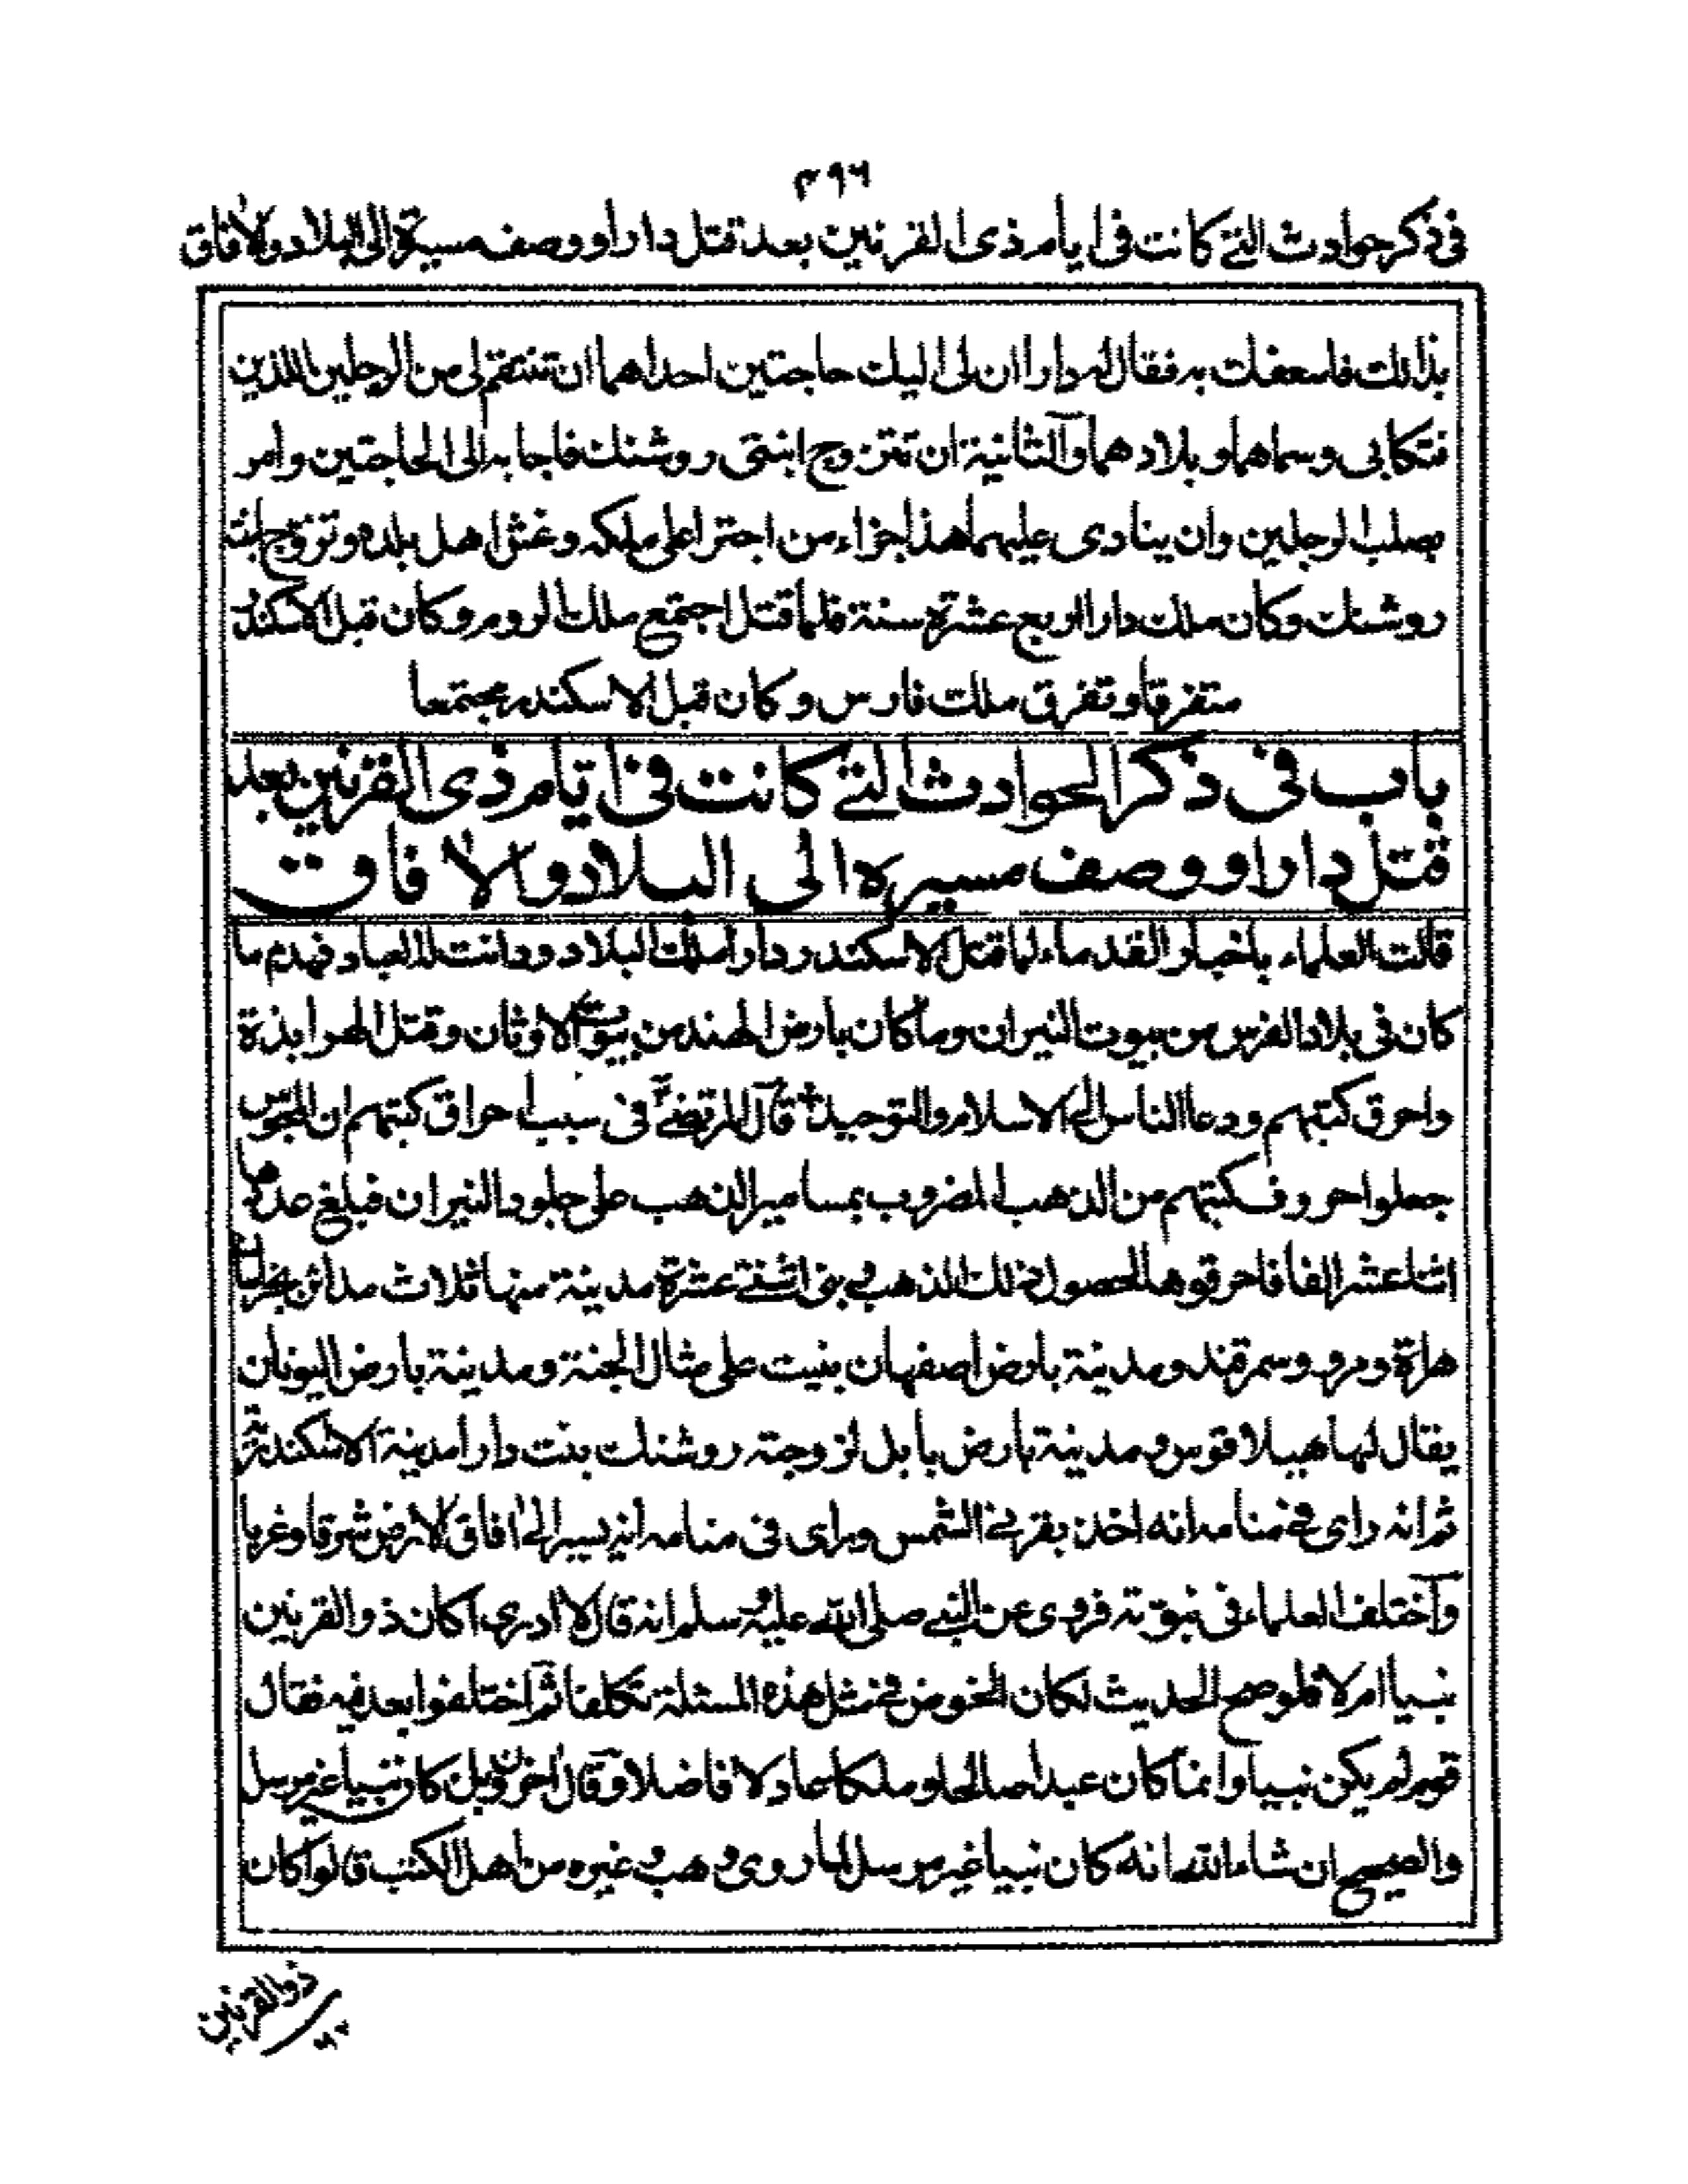 ٣٩٦
فى ذكر حوادث التى كانت فى ايام ذى القرنين بعد قتل دارا ووصف مسيرة الى البلاد والآفاق
بذالك فاسعفك به فقال له دارا ان لى اليك حاجتين احداهما ان تنتقم لى من الرجلين اللذين
فتكا بى وسماهما وبلادهما والثانية ان تتزوج ابنتى روشنك فاجابه الى الحاجتين وامر
بصلب الرجلين وان ينادى عليهما هذا جزاء من اجترا على ملكه وغش اهل بلده وتزوج ابنته
روشنك وكان ملك دارا اربع عشرة سنة فلما قتل اجتمع ملك الروم وكان قبل الاسكندر
متفرقا وتفرق ملك فارس وكان قبل الاسكندر مجتمعا
باب فى ذكر الحوادث التى كانت فى ايام ذى القرنين بعد
قتل دارا ووصف مسيره الى البلاد والآفاق
قالت العلماء باخبار القدماء لما قتل الاسكندر دارا ملك البلاد ودانت له العباد فهدم ما
كان فى بلاد الفرس من بيوت النيران وما كان بارض الهند من بيوت الاوثان وقتل الهرابذة
واحرق كتبهم ودعا الناس الى الاسلام والتوحيد قال المرتضى فى سبب احراق كتبهم ان المجوس
جعلوا حروف كتبهم من الذهب المضروب بمسامير الذهب على جلود النيران فبلغ عددها
اثنا عشر الفا فاحرقوها لحصول ذلك الذهب بنى اثنتى عشرة مدينة منها ثلاث مدائن بخراسان
هراة ومرو وسمرقند ومدينة بارض اصفهان بنيت على مثال الجنة ومدينة بارض اليونان
يقال لها هيلاقوس ومدينة بارض بابل لزوجته روشنك بنت دارا مدينة الاسكندرية
ثم انه راى فى منامه انه اخذ بقرنى الشمس وراى فى منامه انه يسير الى آفاق الارض شرقا وغربا
واختلف العلماء فى نبوته فروى عن النبى صلى الله عليه وسلم انه قال لا ادرى اكان ذو القرنين
نبيا ام لا فلو صح الحديث لكان الخوض فى مثل هذه المسئلة تكلفا ثم اختلفوا بعد فيه فقال
قوم لم يكن نبيا وانما كان عبدا صالحا وملكا عادلا فاضلا وقال اخرون بل كان نبيا غير مرسل
والصحيح ان شاء الله انه كان نبيا غير مرسل لما روى وهب وغيره من اهل الكتب قالوا كان
ذو القرنين